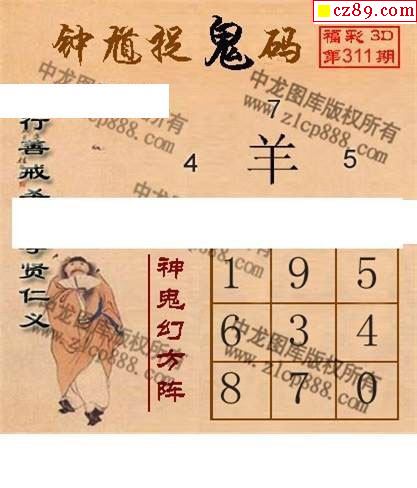 cz89.com
钟馗捉鬼码
福彩3D
第311期
中龙图库版权所有
www.zlcp888.com
7
4 羊 5
行善戒
贤仁义
神鬼幻方阵
1 9 5
6 3 4
8 7 0
中龙图库版权所有
www.zlcp888.com
中龙图库版权所有
www.zlcp888.com